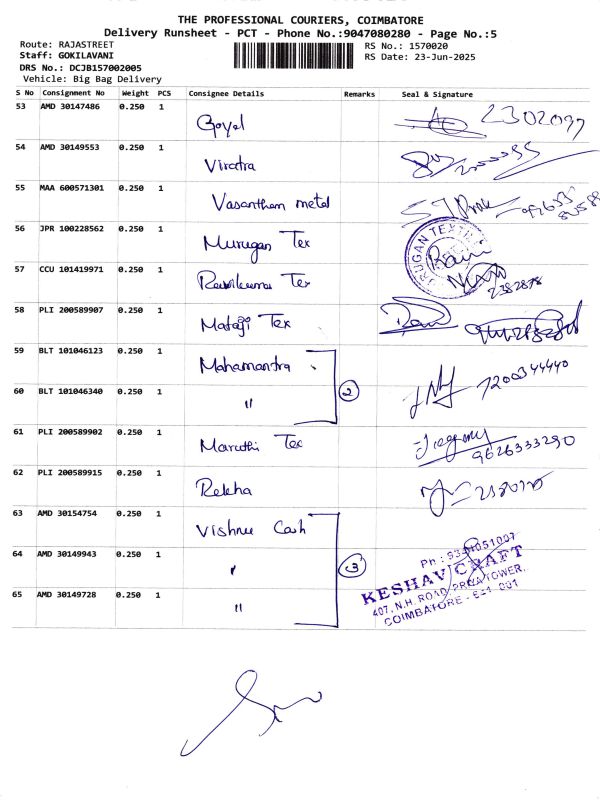 THE PROFESSIONAL COURIERS, COIMBATORE
Delivery Runsheet - PCT - Phone No.:9047080280 - Page No.:5
Route: RAJASTREET RS No.: 1570020
Staff: GOKILAVANI RS Date: 23-Jun-2025
DRS No.: DCJB157002005
Vehicle: Big Bag Delivery
S No Consignment No Weight PCS Consignee Details Remarks Seal & Signature
53 AMD 30147486 0.250 1 Goyal 2302097
54 AMD 30149553 0.250 1
55 MAA 600571301 0.250 1 Vasantham metal
56 JPR 100228562 0.250 1 Murugan Tex
57 CCU 101419971 0.250 1 Tex 2382878
58 PLI 200589907 0.250 1 Mataji Tex
59 BLT 101046123 0.250 1 Mahamantra
60 BLT 101046340 0.250 1 " 2 7200344440
61 PLI 200589902 0.250 1 Maruthi Tex 9626333290
62 PLI 200589915 0.250 1 Rekha
63 AMD 30154754 0.250 1 Vishnu Cash
64 AMD 30149943 0.250 1 " 3
65 AMD 30149728 0.250 1 "
KESHAV CRAFT
407, N.H. ROAD, TOWER,
COIMBATORE - 641 001